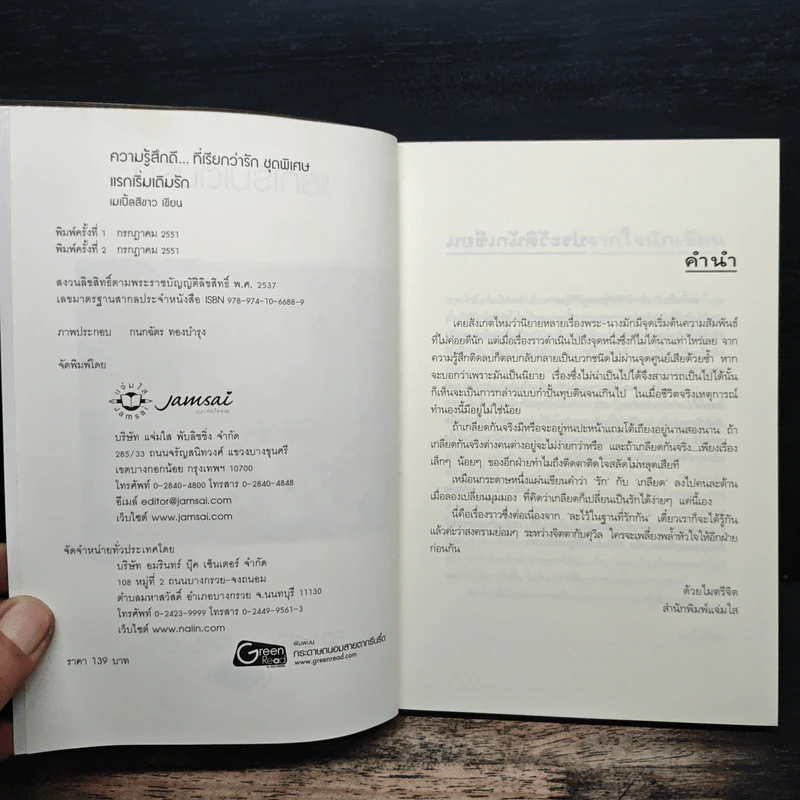 ความรู้สึกดี... ที่เรียกว่ารัก ชุดพิเศษ
แรกเริ่มเดิมรัก
เมเปิ้ลสีขาว เขียน
พิมพ์ครั้งที่ 1 กรกฎาคม 2551
พิมพ์ครั้งที่ 2 กรกฎาคม 2551
สงวนลิขสิทธิ์ตามพระราชบัญญัติลิขสิทธิ์ พ.ศ. 2537
เลขมาตรฐานสากลประจำหนังสือ ISBN 978-974-10-6688-9
ภาพประกอบ กนกฉัตร ทองบำรุง
จัดพิมพ์โดย
แจ่มใส
Jamsai
Jamsai
บริษัท แจ่มใส พับลิชชิ่ง จำกัด
285/33 ถนนจรัญสนิทวงศ์ แขวงบางขุนศรี
เขตบางกอกน้อย กรุงเทพฯ 10700
โทรศัพท์ 0-2840-4800 โทรสาร 0-2840-4848
อีเมล์ editor@jamsai.com
เว็บไซต์ www.jamsai.com
จัดจำหน่ายทั่วประเทศโดย
บริษัท อมรินทร์ บุ๊ค เซ็นเตอร์ จำกัด
108 หมู่ที่ 2 ถนนบางกรวย-จงถนอม
ตำบลมหาสวัสดิ์ อำเภอบางกรวย จ.นนทบุรี 11130
โทรศัพท์ 0-2423-9999 โทรสาร 0-2449-9561-3
เว็บไซต์ www.naiin.com
ราคา 139 บาท
Green Read
พิมพ์บน
กระดาษถนอมสายตากรีนรี้ด
www.greenread.com
คำนำ
เคยสังเกตไหมว่านิยายหลายเรื่องพระ-นางมักมีจุดเริ่มต้นความสัมพันธ์
ที่ไม่ค่อยดีนัก แต่เมื่อเรื่องราวดำเนินไปถึงจุดหนึ่งซึ่งก็ไม่ได้นานเท่าไหร่เลย จาก
ความรู้สึกติดลบก็ตลบกลับกลายเป็นบวกชนิดไม่ผ่านจุดศูนย์เสียด้วยซ้ำ หาก
จะบอกว่าเพราะมันเป็นนิยาย เรื่องซึ่งไม่น่าเป็นไปได้จึงสามารถเป็นไปได้นั้น
ก็เห็นจะเป็นการกล่าวแบบกำปั้นทุบดินจนเกินไป ในเมื่อชีวิตจริงเหตุการณ์
ทำนองนี้มีอยู่ไม่ใช่น้อย
ถ้าเกลียดกันจริงมีหรือจะอยู่ทนปะหน้าแถมโต้เถียงอยู่นานสองนาน ถ้า
เกลียดกันจริงต่างคนต่างอยู่จะไม่ง่ายกว่าหรือ และถ้าเกลียดกันจริง...เพียงเรื่อง
เล็กๆ น้อยๆ ของอีกฝ่ายทำไมถึงติดตาติดใจสลัดไม่หลุดเสียที
เหมือนกระดาษหนึ่งแผ่นเขียนคำว่า 'รัก' กับ 'เกลียด' ลงไปคนละด้าน
เมื่อลองเปลี่ยนมุมมอง ที่คิดว่าเกลียดก็เปลี่ยนเป็นรักได้ง่ายๆ แค่นี้เอง
นี่คือเรื่องราวซึ่งต่อเนื่องจาก 'ละไว้ในฐานที่รักกัน' เดี๋ยวเราก็จะได้รู้กัน
แล้วค่ะว่าสงครามย่อมๆ ระหว่างจิตตากับศุวิล ใครจะเพลี่ยงพล้ำหัวใจให้อีกฝ่าย
ก่อนกัน
ด้วยไมตรีจิต
สำนักพิมพ์แจ่มใส